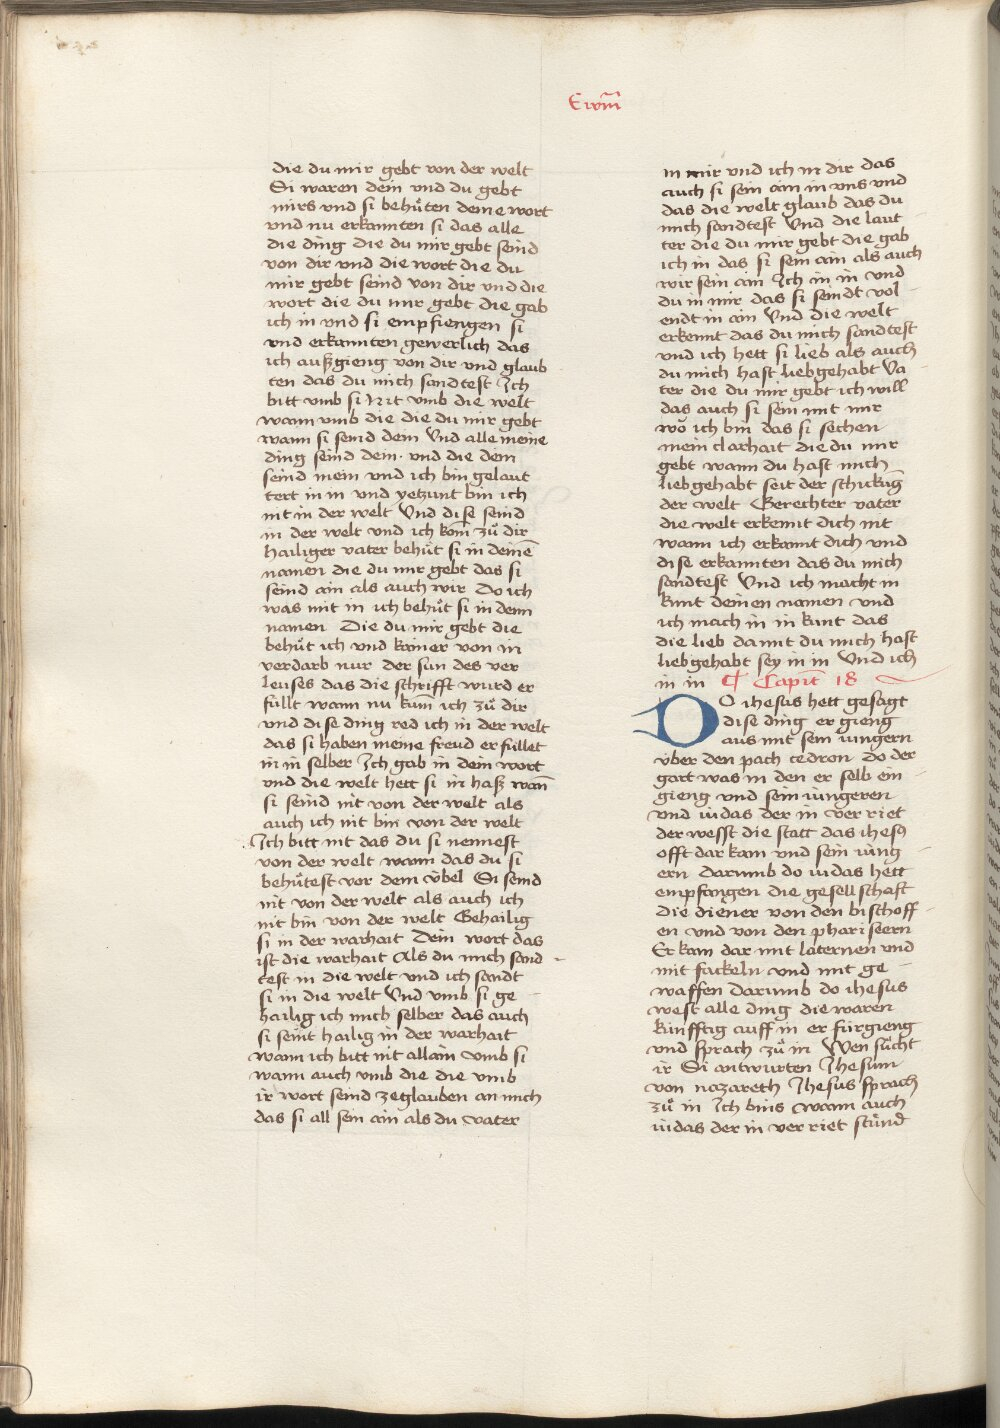 die du mir gebt von der welt
Si waren dein vnd du gebt
mirs vnd si behůten deine wort
vnd nu erkannten si das alle
die ding die du mir gebt seind
von dir vnd die wort die du
mir gebt seind von dir vnd die
wort die du mir gebt die gab
ich in vnd si empfiengen si
vnd erkannten gewerlich das
ich außgieng von dir vnd glaub
ten das du mich sandtest Ich
bitt vmb si Nit vmb die welt
wann vmb die die du mir gebt
wann si seind dein Vnd alle meine
ding seind dein · vnd die dein
seind mein vnd ich bin gelaut
tert in in vnd yetzunt bin ich
nit in der welt Vnd dise seind
in der welt vnd ich kom̄ zů dir
hailiger vater behůt si in deinē
namen die du mir gebt das si
seind ain als auch wir Do ich
was mit in ich behůt si in deim
namen Die du mir gebt die
behůt ich vnd kainer von in
verdarb nur der sun des ver
leuses das die schrifft wurd er
füllt wann nu kum̄ ich zů dir
vnd dise ding red ich in der welt
das si haben meine freud erfüllet
in in selber Ich gab in dein wort
vnd die welt hett si in haß wan̄
si seind nit von der welt als
auch ich nit bin von der welt
Ich bitt nit das du si nemest
von der welt wann das du si
behůtest vor dem übel Si seind
nit von der welt als auch ich
nit bin von der welt Gehailig
si in der warhait Dein wort das
ist die warhait Als du mich sand
test in die welt vnd ich sandt
si in die welt Vnd vmb si ge
hailig ich mich selber das auch
si seint hailig in der warhait
wann ich bitt nit allain vmb si
wann auch vmb die die vmb
ir wort seind zeglauden an mich
das si all sein ain als du vater
in mir vnd ich in dir das
auch si sein ain in vns vnd
das die welt glaub das du
mich sandtest Vnd die laut
ter die du mir gebt die gab
ich in das si sein ain als auch
wir sein ain Ich in in vnd
du in mir das si seindt vol
endt in ain Vnd die welt
erkennt das du mich sandtest
vnd ich hett si lieb als auch
du mich hast liebgehabt Va
ter die du mir gebt ich will
das auch si sein mit mir
wo ich bin das si sechen
mein clarhait die du mir
gebt wann du hast mich
liebgehabt seit der schickūg
der welt Gerechter vater
die welt erkennt dich nit
wann ich erkannt dich vnd
dise erkannten das du mich
sandtest Vnd ich macht in
kunt deinen namen vnd
ich mach in in kunt das
die lieb damit du mich hast
liebgehabt sey in in Vnd ich
in in ¶ Capit̄ 18
DO ihesus hett gesagt
dise ding er gieng
aus mit sein iungern
vber den pach cedron do der
gart was in den er selb ein
gieng vnd sein iungeren
vnd iudas der in verriet
der wesst die statt das ihesꝰ
offt dar kam vnd sein iung
ern darumb do iudas hett
empfangen die gesellschaft
die diener von den bischoff
en vnd von den phariseern
Er kam dar mit laternen vnd
mit fackeln vnd mit ge
waffen darumb do ihesus
west alle ding die waren
künfftig auff in er fürgieng
vnd sprach zů in Wen sůcht
ir Si antwurten Ihesum
von nazareth Ihesus sprach
zů in Ich bins wann auch
iudas der in verriet stůnd